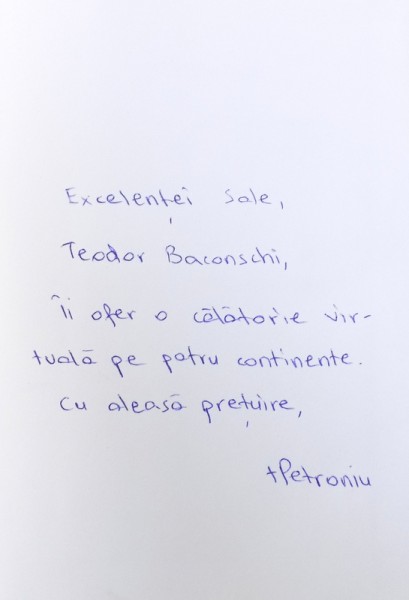 Excelenței Sale,
Teodor Baconschi,
Îi ofer o călătorie vir-
tuală pe patru continente.
Cu aleasă prețuire,
†Petroniu